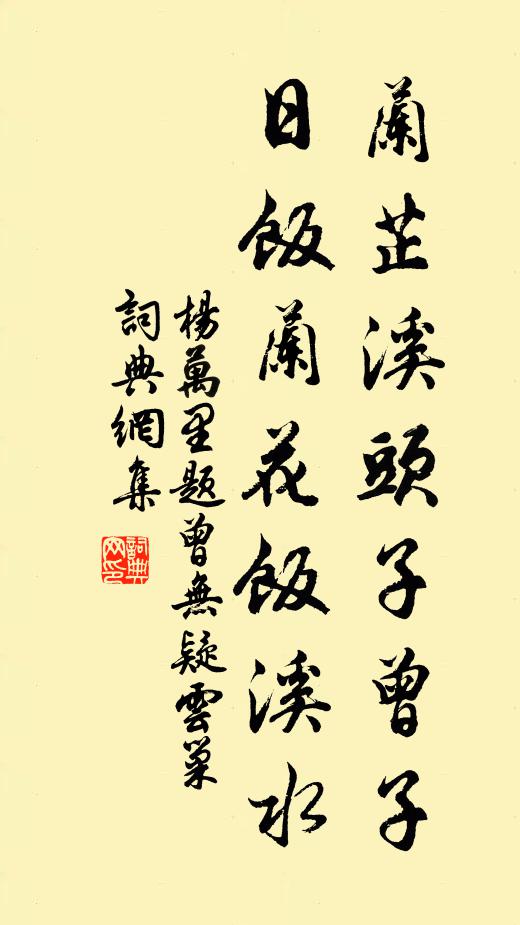 蘭芷溪頭子曾子
日飯蘭花飯溪水
楊萬里題曾無疑雲巢
詞典網集
詞典網印